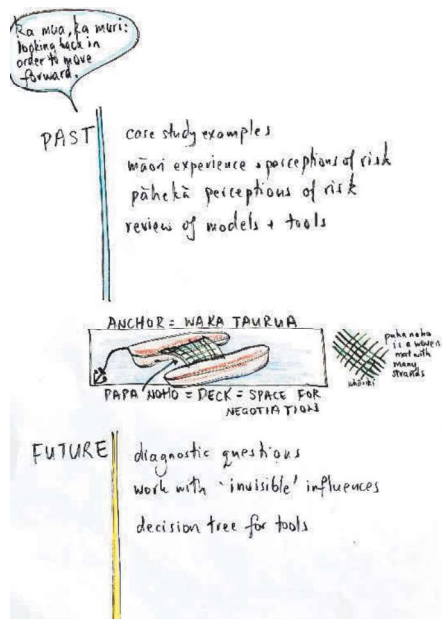 ka mua, ka muri:
looking back in
order to move
forward.
PAST
case study examples
māori experience + perceptions of risk
pāhekā perceptions of risk
review of models + tools
ANCHOR = WAKA TAURUA
PAPA NOHO = DECK = SPACE FOR
NEGOTIATIONS
is a woven
mat with
many
strands
whāriki
FUTURE
diagnostic questions
work with 'invisible' influences
decision tree for tools